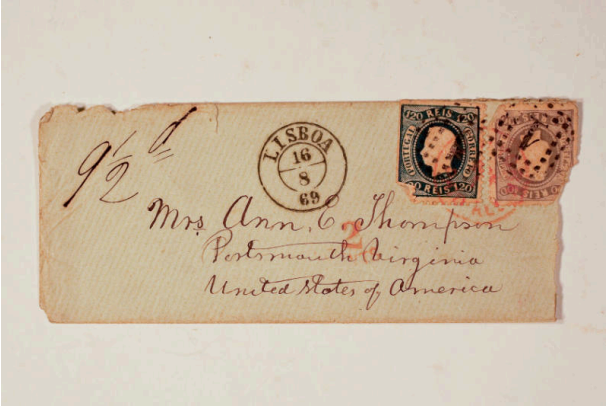 9 1/2 d
LISBOA
16
8
69
120 REIS 120
PORTUGAL
CORREIO
120 REIS 120
REIS
Mrs Ann, C Thompson
2
Portsmouth Virginia
United States of America